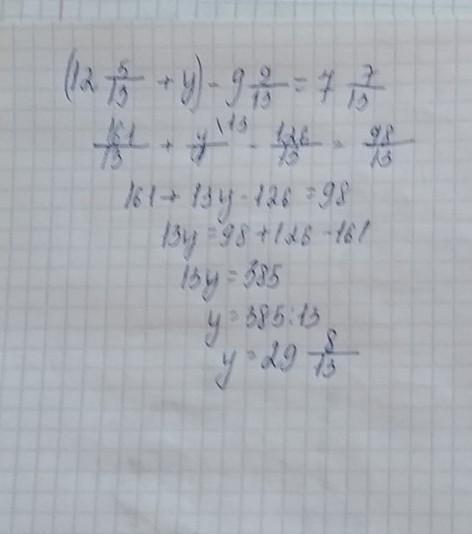 (12 5/13 + y) - 9 9/13 = 7 7/13
161/13 + y\13 - 126/13 = 98/13
161 + 13y - 126 = 98
13y = 98 + 126 - 161
13y = 385
y = 385:13
y = 29 8/13